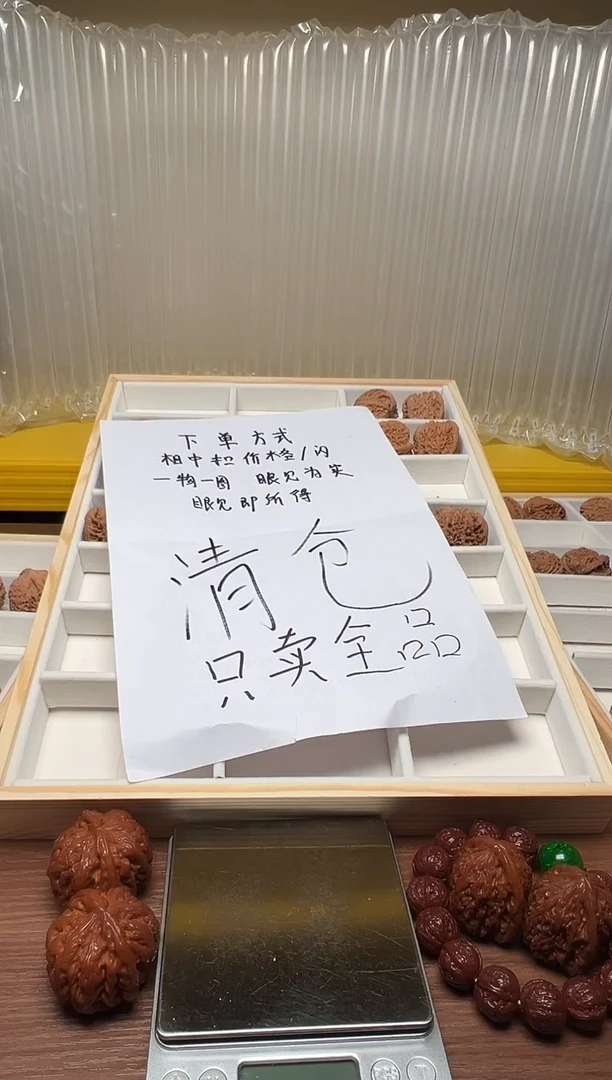 下单方式
相中扣价检/闪
一物一图 眼见为实
眼见即所得
清仓
只卖全品